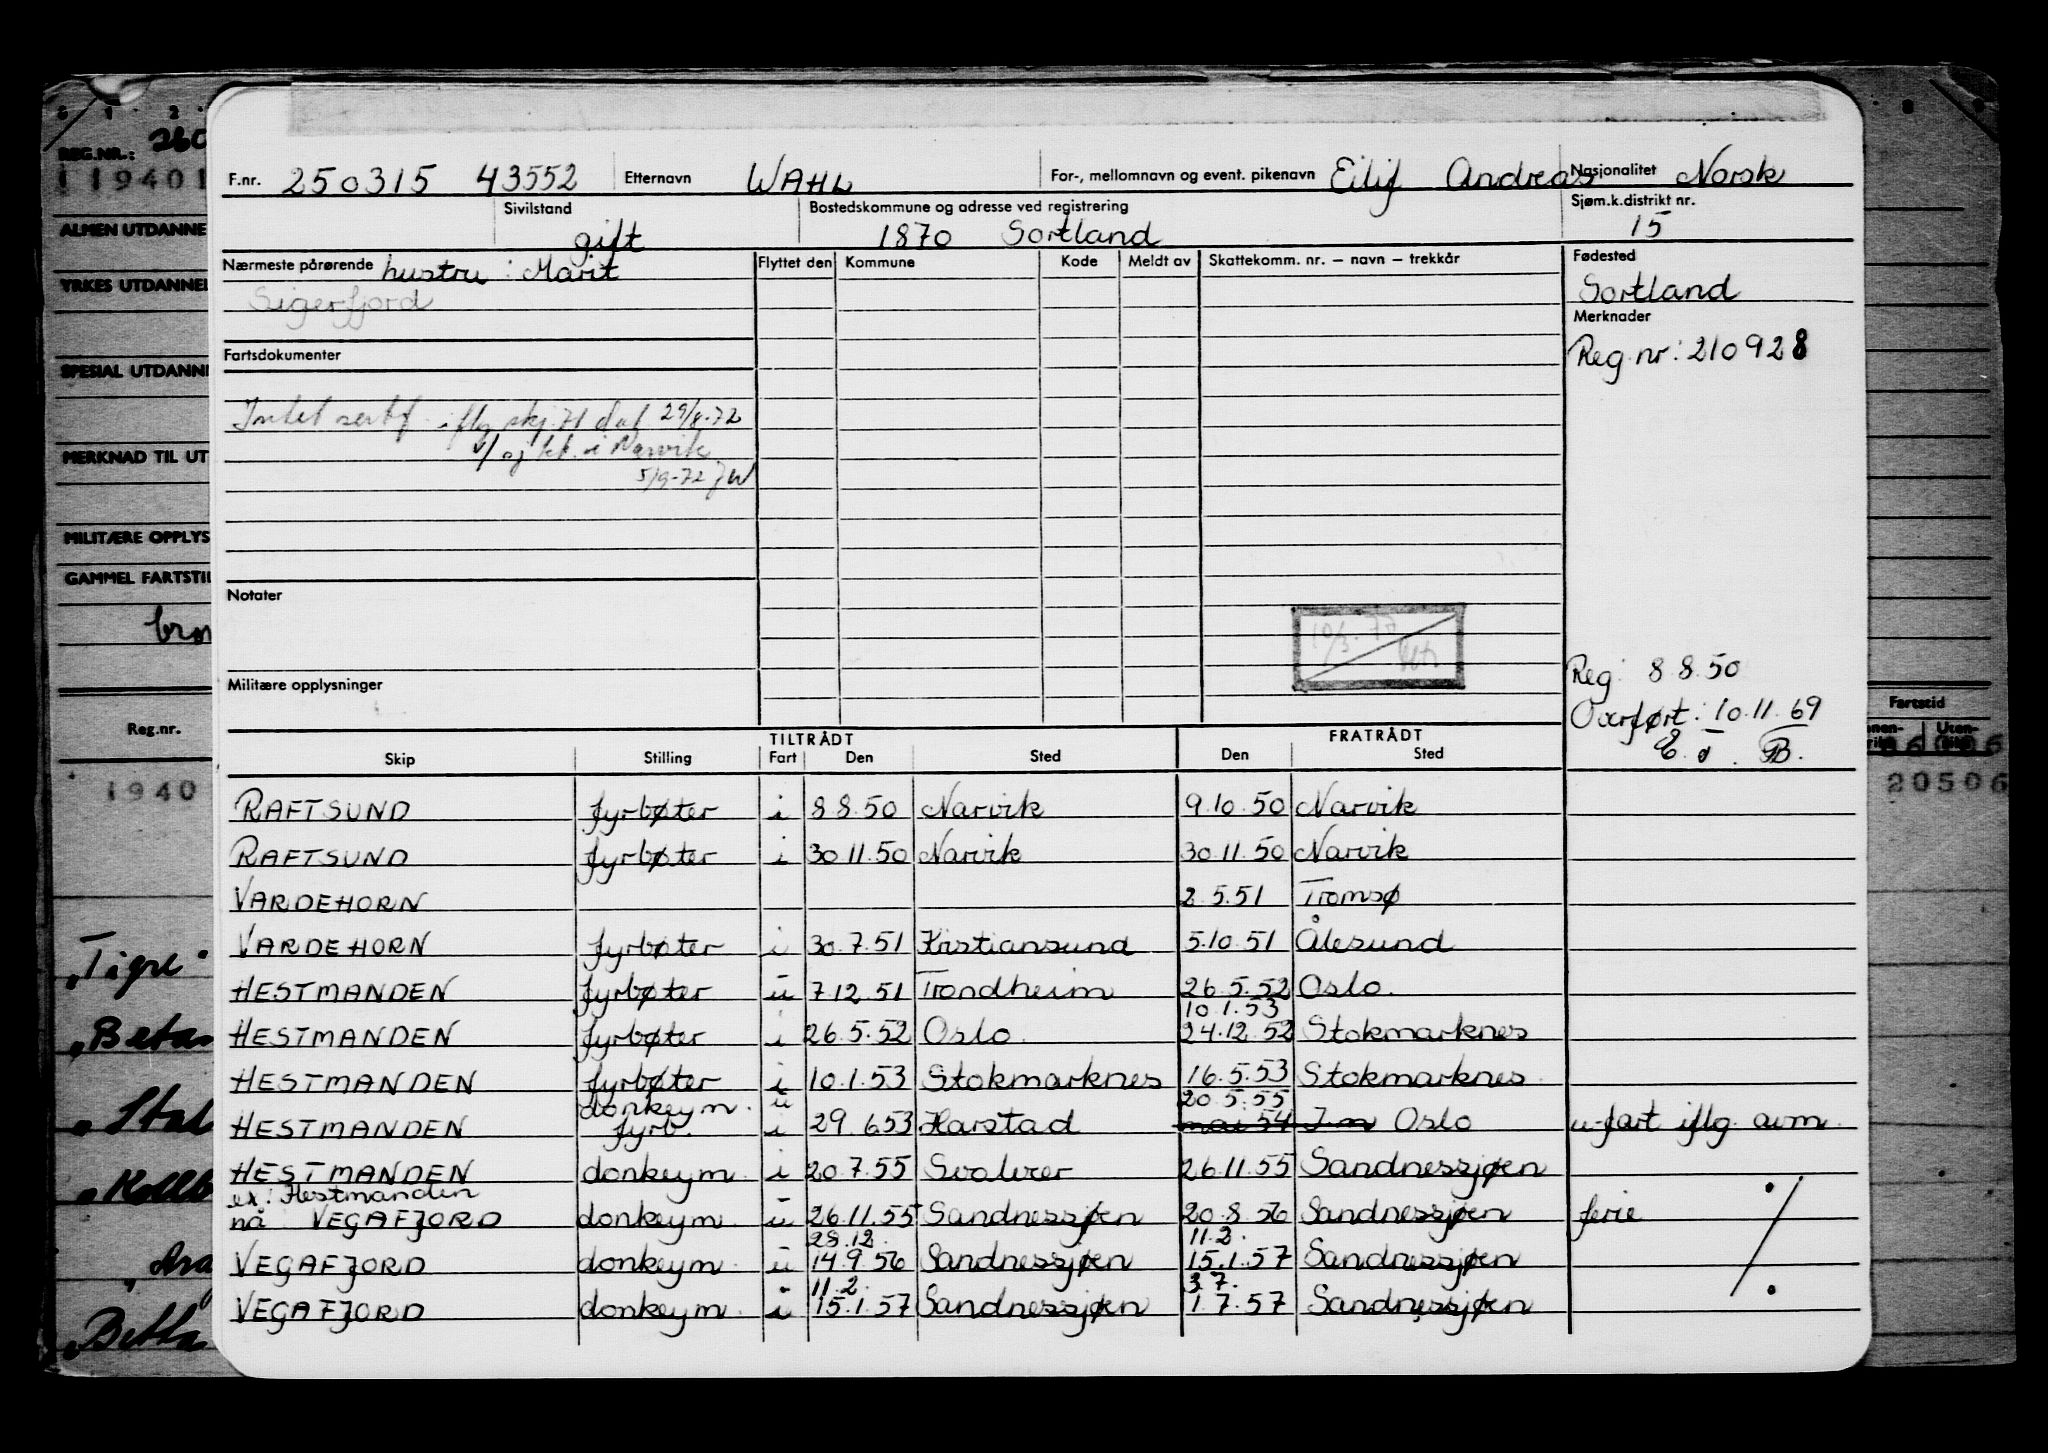 F.nr. 250315 43552 Etternavn WAHL For-, mellomnavn og event. pikenavn Eilif Andreas Nasjonalitet Norsk
Sivilstand gift Bostedskommune og adresse ved registrering 1870 Sortland Sjøm.k.distrikt nr. 15
Nærmeste pårørende hustru : Marit Flyttet den Kommune Kode Meldt av Skattekomm. nr. – navn – trekkår Fødested
Sigerfjord Sortland
Merknader
Fartsdokumenter Reg.nr: 210928
Intet sertf. iflg skj. 71 dat 29/8-72
i Narvik
5/9-72
Notater
10/3.77
Militære opplysninger
Reg: 8.8.50
Overført: 10.11.69
TILTRÅDT FRATRÅDT
Skip Stilling Fart Den Sted Den Sted
RAFTSUND fyrbøter i 8.8.50 Narvik 9.10.50 Narvik
RAFTSUND fyrbøter i 30.11.50 Narvik 30.11.50 Narvik
VARDEHORN 2.5.51 Tromsø
VARDEHORN fyrbøter i 30.7.51 Kristiansund 5.10.51 Ålesund
HESTMANDEN fyrbøter u 7.12.51 Trondheim 26.5.52 Oslo.
10.1.53
HESTMANDEN fyrbøter i 26.5.52 Oslo. 24.12.52 Stokmarknes
HESTMANDEN fyrbøter i 10.1.53 Stokmarknes 16.5.53 Stokmarknes
donkeym. u 20.5.55
HESTMANDEN fyrb. i 29.6.53 Harstad mai 54 Oslo u-fart iflg. avm.
HESTMANDEN donkeym. i 20.7.55 Svolvær 26.11.55 Sandnessjøen
ex: Hestmanden
nå VEGAFJORD donkeym. u 26.11.55 Sandnessjøen 20.8.56 Sandnessjøen ferie
28.12. 11.2.
VEGAFJORD donkeym. u 14.9.56 Sandnessjøen 15.1.57 Sandnessjøen
11.2. 3.7.
VEGAFJORD donkeym. i 15.1.57 Sandnessjøen 1.7.57 Sandnessjøen
REG.NR.: 260
119401
ALMEN UTDANNE
YRKES UTDANNEL
SPESIAL UTDANNI
MERKNAD TIL UT
MILITÆRE OPPLYS
GAMMEL FARTSTI
Reg.nr.
1940
"Tigre"
"Betan
"Stal
"Kollb
Fartstid
20506